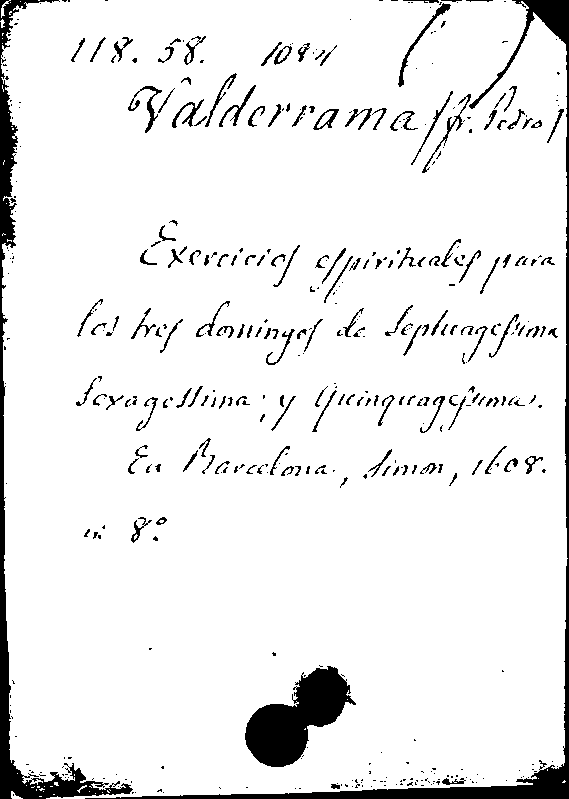 118. 58.
Valderrama (fr. Pedro)
Exercicios espirituales para
los tres domingos de Septuagessima
Sexagessima; y Quinquagessima.
En Barcelona, Simon, 1608.
in 8º